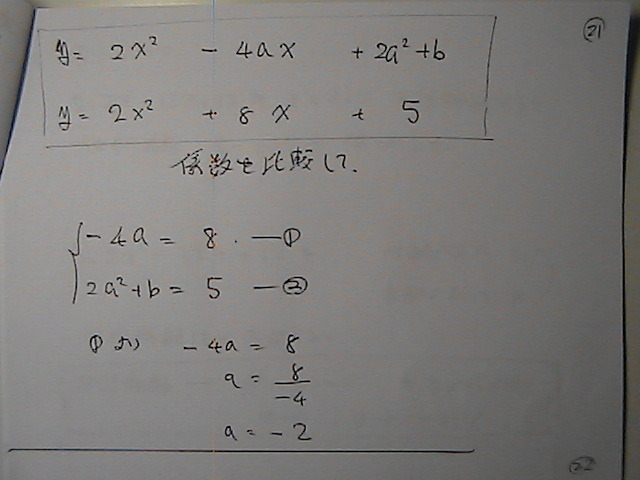 ㉑
y = 2x² - 4ax + 2a² + b
y = 2x² + 8x + 5
係数を比較して.
{ -4a = 8. ―①
2a² + b = 5 ―②
①より -4a = 8
a = 8/-4
a = -2
㉒